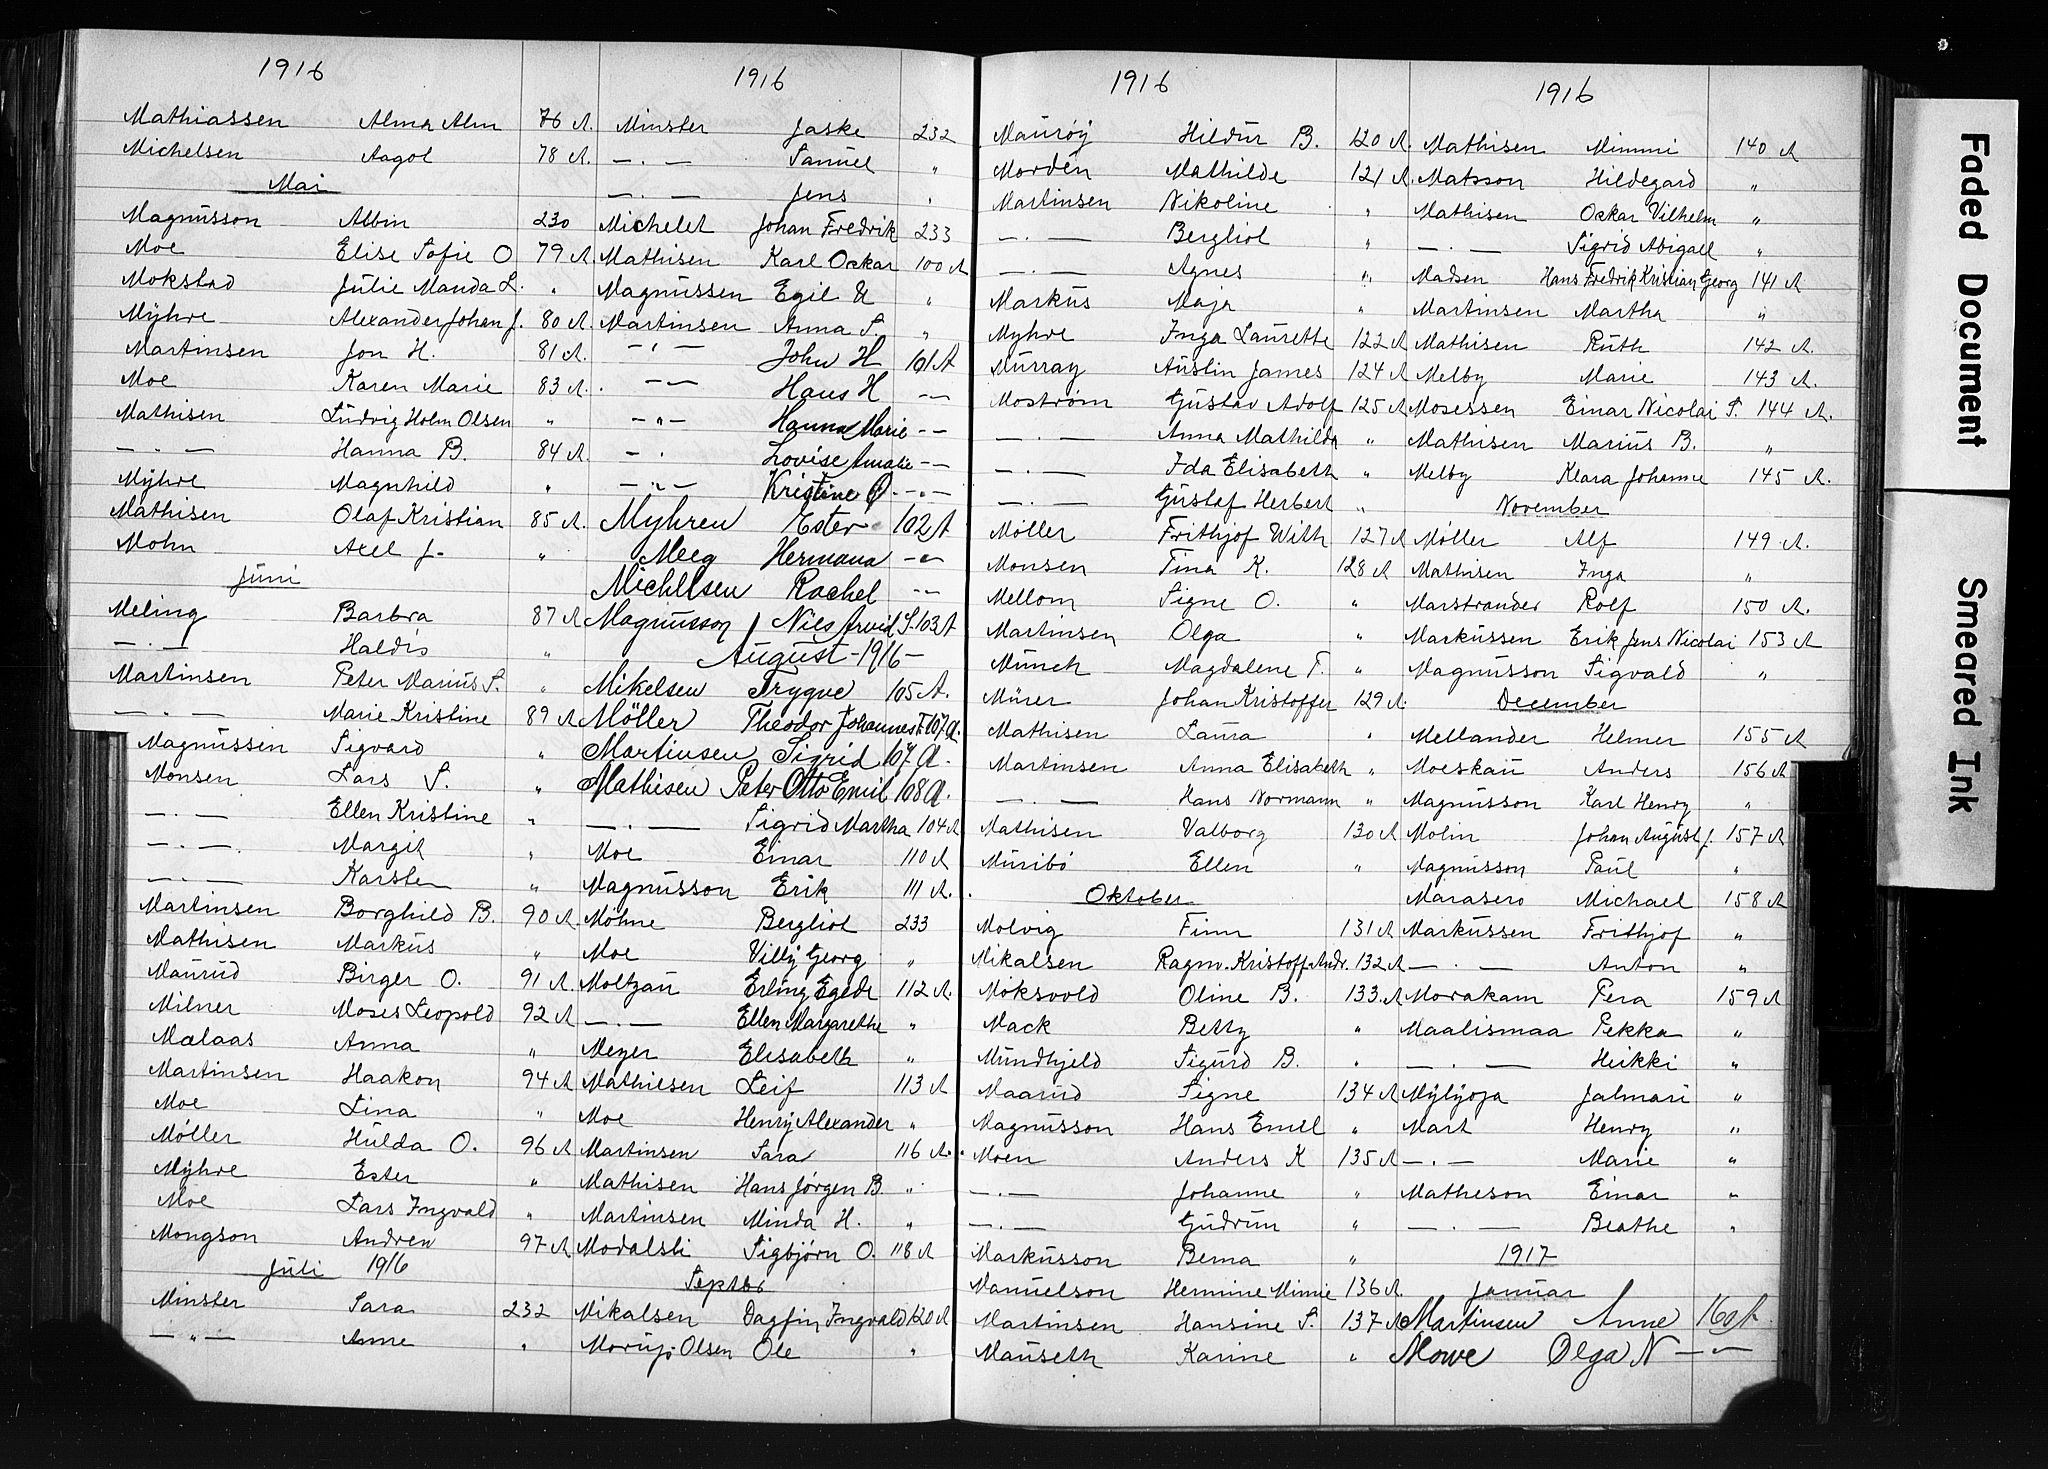 1916
Mathiassen Alma Alm 76 A.
Michelsen Aagot 78 A.
Mai
Magnusson Albin 230
Moe Elise Sofie O 79 A
Mokstad Julie Manda L. "
Myhre Alexander Johan J. 80 A.
Martinsen Jon H. 81 A.
Moe Karen Marie 83 A.
Mathisen Ludvig Holm Olsen "
— . — Hanna B. 84 A.
Myhre Magnhild "
Mathisen Olaf Kristian 85 A.
Mohn Axel J. "
Juni
Meling Barbra 87 A
— . — Haldis "
Martinsen Peter Marius S. "
— . — Marie Kristine 89 A
Magnussen Sigvard "
Monsen Lars S. "
— . — Ellen Kristine "
— . — Margit "
— . — Karsten "
Martinsen Borghild B. 90 A.
Mathisen Markus "
Maurud Birger O. 91 A.
Milner Moses Leopold 92 A
Mælaas Anna "
Martinsen Haakon 94 A
Moe Lina "
Møller Hulda O. 96 A
Myhre Ester "
Moe Lars Ingvald "
Mongson Andrew 97 A
Juli 1916
Minster Sara 232
— " — Anne "
1916
Minster Jaske 232
— . — Samuel "
— . — Jens "
Michelet Johan Fredrik 233
Mathisen Karl Oskar 100 A
Magnussen Egil U "
Martinsen Anna S. "
— " — John H 101 A
— " — Hans H — " —
— " — Hanna Marie — " —
— " Lovise Amalie — " —
— " — Kristine O. — " —
Myhren Ester 102 A
Meeg Hermana — " —
Michelsen Rachel — " —
Magnusson Nils Arvid S. 103 A
August - 1916 -
Mikelsen Trygve 105 A.
Möller Theodor Johannes F. 107 A.
Martinsen Sigrid 107 A.
Mathisen Peter Otto Emil 108 A.
— . — Sigrid Martha 104 A
Moe Einar 110 A
Magnusson Erik 111 A.
Møhne Bergliot 233
Moe Villy Georg "
Moltzau Erling Egede 112 A.
— . — Ellen Margarethe "
Meyer Elisabeth "
Mathiesen Leif 113 A
Moe Henry Alexander "
Martinsen Sara 116 A.
Mathisen Hans Jørgen B. "
Martinsen Minda H. "
Modalsli Sigbjørn O. 118 A
Septbr
Mikalsen Dagfin Ingvald 120 A
Morup-Olsen Ole "
1916
Maurøy Hildur B. 120 A.
Mordén Mathilde 121 A.
Martinsen Nikoline "
— . — Bergliot "
— . — Agnes "
Markus Maja "
Myhre Inga Laurette 122 A
Murray Austin James 124 A
Moström Gustav Adolf 125 A
— . — Anna Mathilda "
— . — Ida Elisabeth "
— . — Gustaf Herbert "
Møller Frithjof With 127 A
Monsen Tina K. 128 A
Mellom Signe O. "
Martinsen Olga "
Münch Magdalene T. "
Mürer Johan Kristoffer 129 A.
Mathisen Laura "
Martinsen Anna Elisabeth "
— . — Hans Normann "
Mathisen Valborg 130 A
Muribö Ellen "
Oktober
Molvig Finn 131 A
Mikalsen Ragnv. Kristoff. Andr. 132 A
Moksvold Oline B. 133. A
Mack Betty "
Mundhjeld Sigurd B. "
Maarud Signe 134 A
Magnusson Hans Emil "
Moen Anders K 135 A
— . — Johanne "
— . — Gudrun "
Markusson Berna "
Manuelson Hermine Minnie 136 A.
Martinsen Hansine S. 137 A
Mauseth Karine "
1916
Mathisen Mimmi 140 A
Matsson Hildegard "
Mathisen Oskar Vilhelm "
— . — Sigrid Abigael "
Madsen Hans Fredrik Kristian Georg 141 A
Martinsen Martha "
Mathisen Ruth 142 A.
Melby Marie 143 A.
Mosessen Einar Nicolai S. 144 A.
Mathisen Marius B. "
Melby Klara Johanne 145 A.
November
Møller Alf 149 A.
Mathisen Inga "
Marstrander Rolf 150 A.
Markussen Erik Jens Nicolai 153 A
Magnusson Sigvald "
December
Mellander Helmer 155 A
Moeskau Anders 156 A
Magnusson Karl Henry "
Molin Johan August J. 157 A
Magnusson Paul "
Marasero Michael 158 A
Markussen Frithjof "
— . — Anton "
Morakam Pera 159 A
Maalismaa Pekka "
— . — Heikki "
Mylyoja Jalmari "
Mart Henry "
— . — Marie "
Matheson Einar "
— . — Beathe "
1917
Januar
Martinsen Anne 160 A.
Mowe Olga N — " —
Faded Document
Smeared Ink